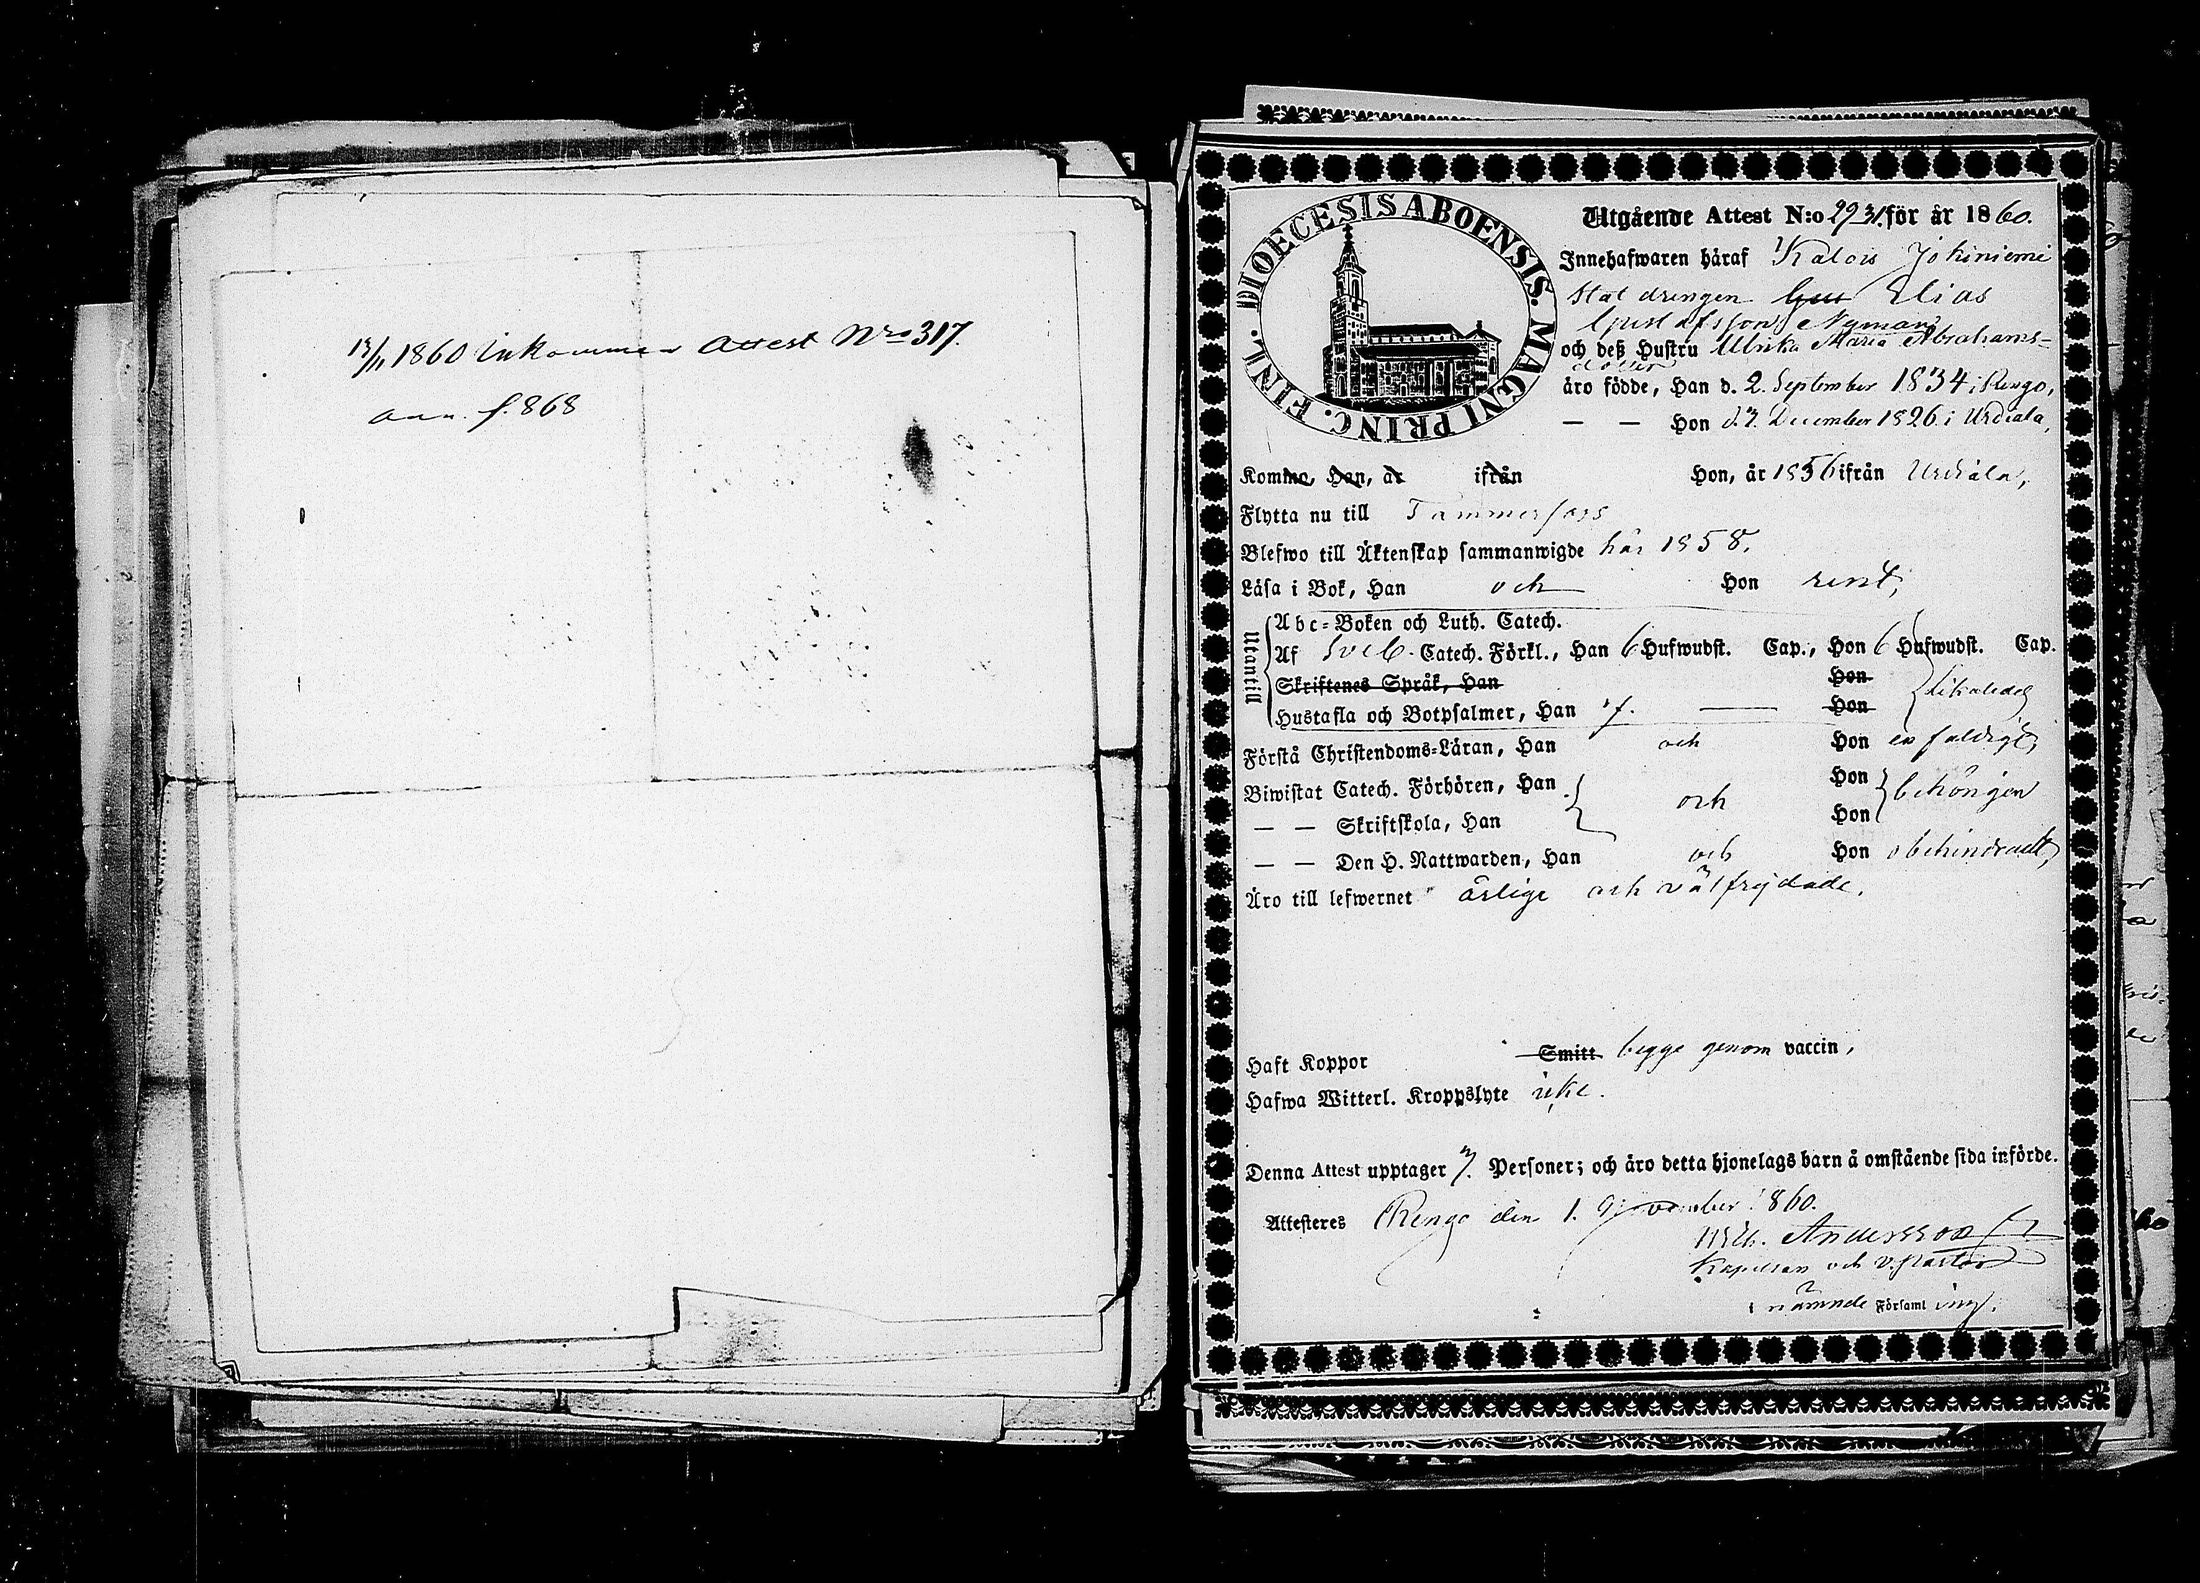 13/11 1860 Inkommen Attest Nro 317.
ann. f. 868
DIOECESIS ABOENSIS. MAGNI PRINC. FINL.
Utgående Attest N:o 29 31. för år 1860.
Innehafwaren häraf Kalois Jokiniemi
Stat drengen Gust Elias
Gustafsson Nyman
och deß Hustru Ulrika Maria Abrahams-
dotter
äro födde, Han d. 2. September 1834 i Rengo,
— — Hon d. 7. December 1826 i Urdiala,
Kommo, Han, år ifrån Hon, år 1856 ifrån Urdiala,
Flytta nu till Tammerfors
Blefwo till Äktenskap sammanwigde här 1858.
Läsa i Bok, Han och Hon rent,
Utantill
Abc-Boken och Luth. Catech.
Af Sveb. Catech. Förkl., Han 6 Hufwudst. Cap., Hon 6 Hufwudst. Cap.
Skriftenes Språk, Han Hon
Hustafla och Botpsalmer, Han 7. — Hon likaledes
Förstå Christendoms-Läran, Han och Hon enfaldigt,
Biwistat Catech. Förhören, Han och Hon behörigen
— — Skriftskola, Han Hon
— — Den H. Nattwarden, Han och Hon obehindradt,
Äro till lefwernet ärlige och välfrejdade.
Haft Koppor Smitt begge genom vaccin,
Hafwa Witterl. Kroppslyte icke.
Denna Attest upptager 7. Personer; och äro detta hjonelags barn å omstående sida införde.
Attesteres Rengo den 1. November 1860.
Andersson
Kapellan och v. pastor
i nämnde Församling.